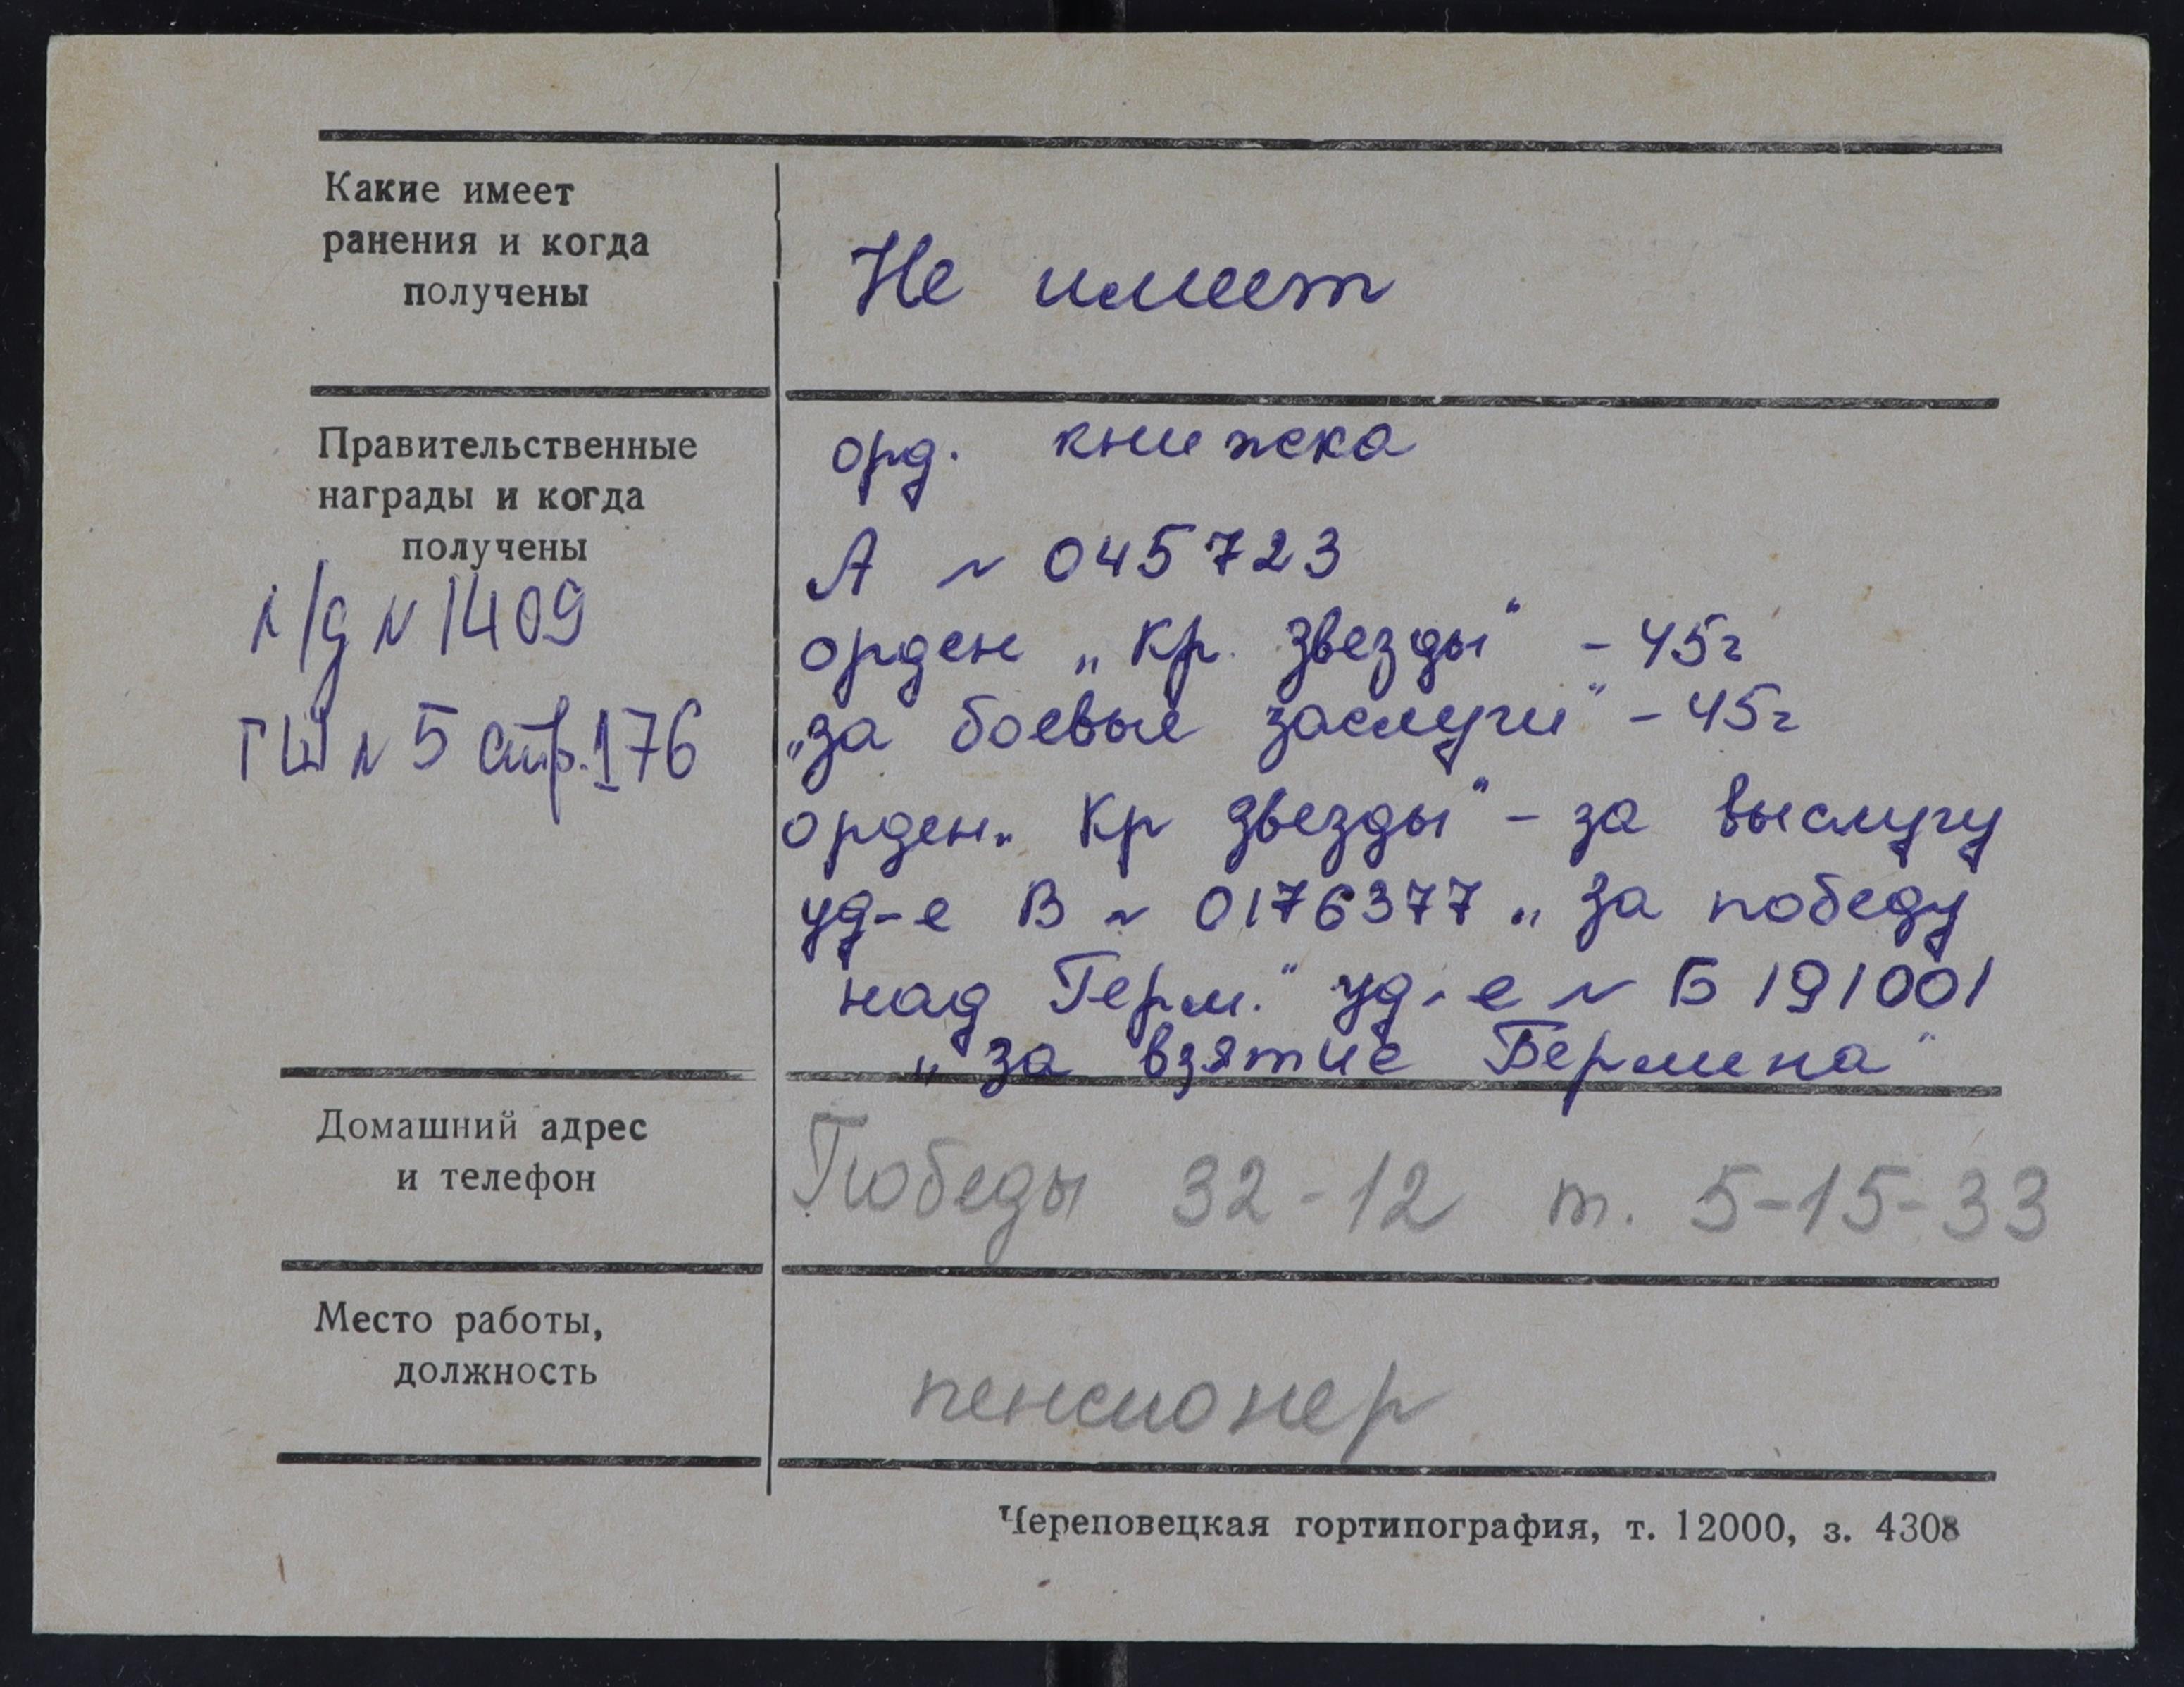 Какие имеет
ранения и когда
получены
Не имеет
Правительственные
награды и когда
получены
л/д № 1409
ГШ № 5 стр. 176
орд. книжка
А № 045723
орден „Кр. Звезды" - 45г
„за боевые заслуги" - 45г
орден „Кр Звезды" - за выслугу
уд-е В № 0176377 „За победу
над Герм." уд-е № Б 191001
„за взятие Берлина"
Домашний адрес
и телефон
Победы 32-12 т. 5-15-33
Место работы,
должность
пенсионер
Череповецкая гортипография, т. 12000, з. 4308